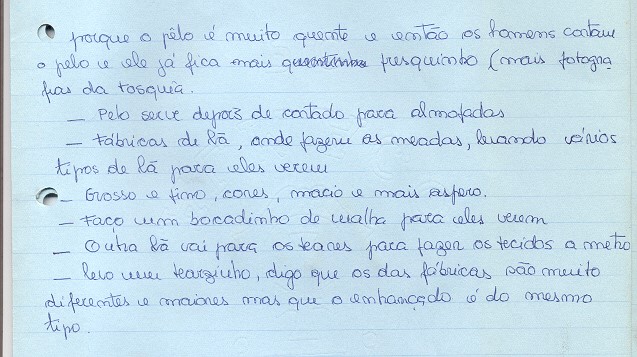 porque o pêlo é muito quente e então os homens cortam
o pelo e ele já fica mais fresquinho (mais fotogra
fias da tosquia.
— Pelo serve depois de cortado para almofadas
— Fábricas de lã, onde fazem as meadas, levando vários
tipos de lã para eles verem
— Grosso e fino, cores, macio e mais aspero.
— Faço um bocadinho de malha para eles verem
— Outra lã vai para os teares para fazer os tecidos a metro
— levo um tearzinho, digo que os das fábricas são muito
diferentes e maiores mas que o enhançado é do mesmo
tipo.